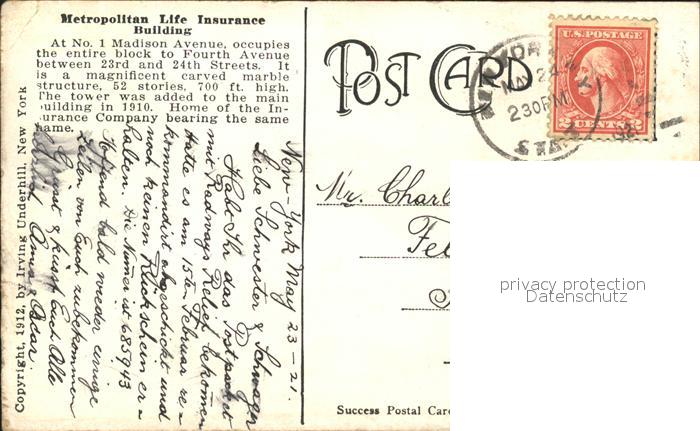 Metropolitan Life Insurance
Building
At No. 1 Madison Avenue, occupies
the entire block to Fourth Avenue
between 23rd and 24th Streets. It
is a magnificent carved marble
structure, 52 stories, 700 ft. high.
The tower was added to the main
building in 1910. Home of the In-
surance Company bearing the same
name.
Copyright, 1912, by Irving Underhill, New York
POST CARD
U.S. POSTAGE
2 CENTS 2
MAY 24
2 30 PM
STA
New-York May 23-21.
Liebe Schwester & Schwager
Habt Ihr das Postpacket
mit Radways Relief bekommen
hatte es am 15ten Februar re-
kommandirt abgeschickt und
noch keinen Rückschein er-
halten. Die Nummer ist 685943
Hoffend bald wieder einige
Zeilen von Euch zu bekommen
Grüsst & küsst Euch Alle
Anna & Oscar.
Mr. Charl
Fe
Success Postal Card
privacy protection
Datenschutz